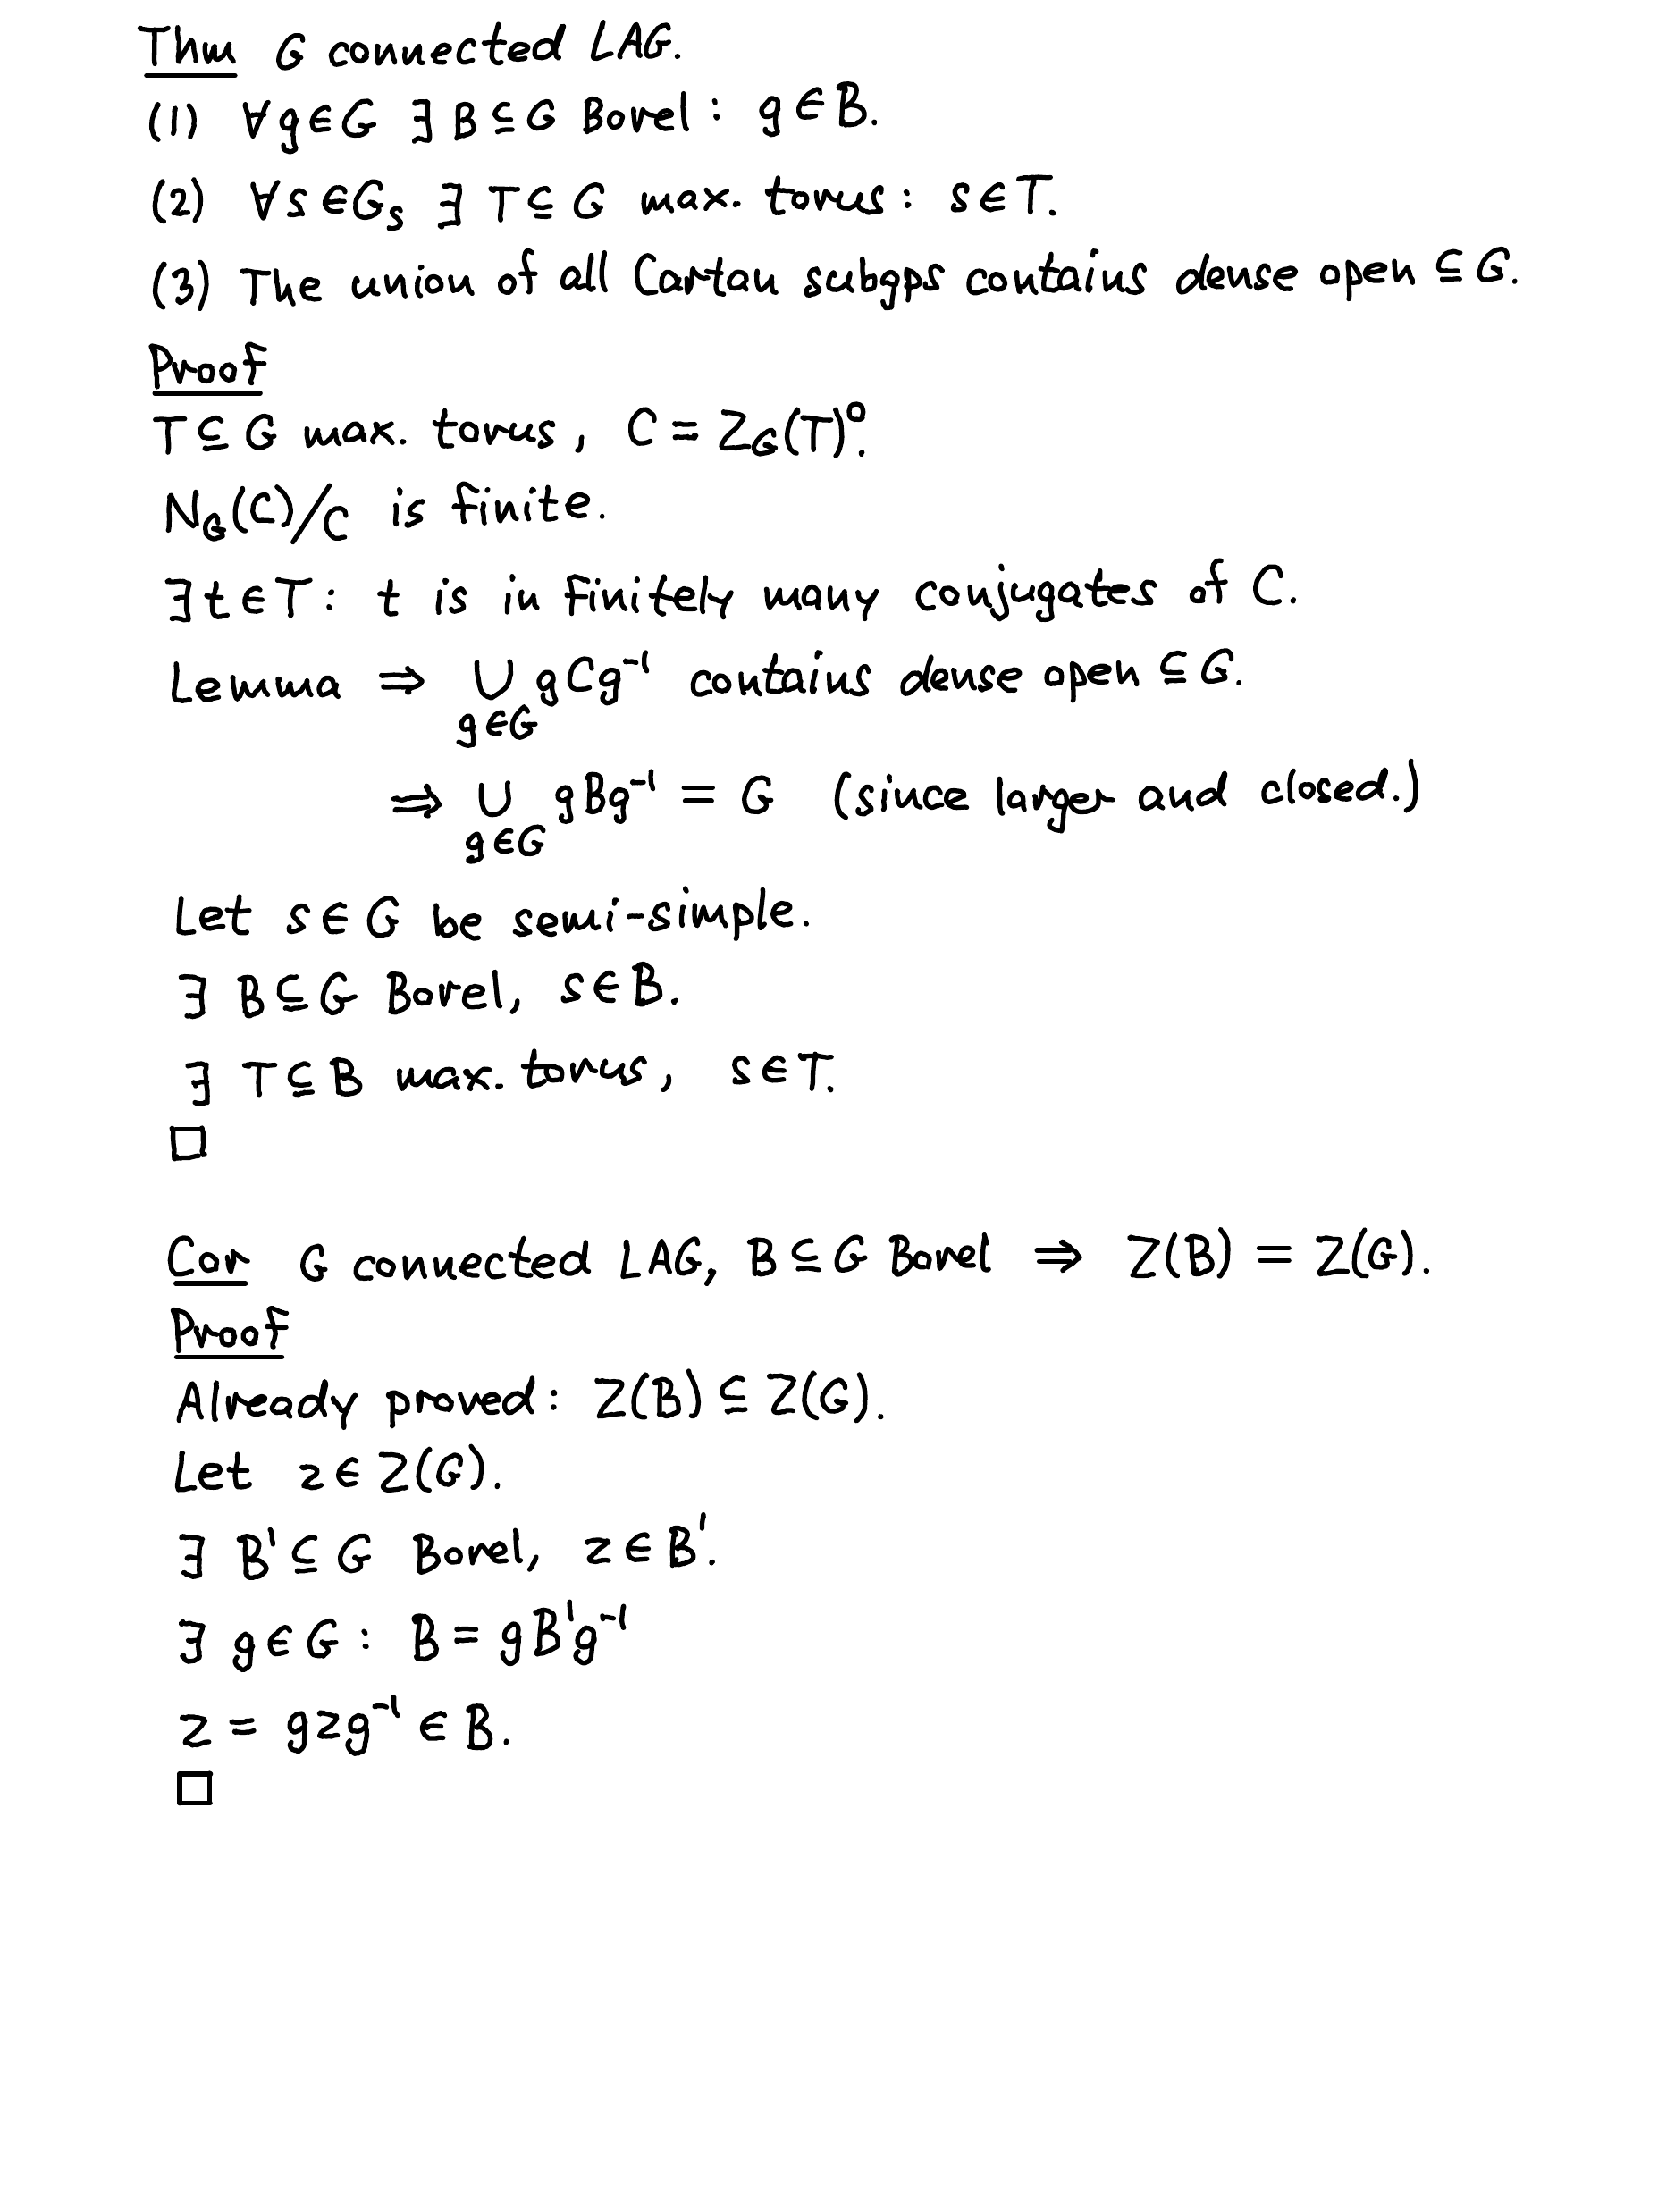 Thm G connected LAG.
(1) ∀g∈G ∃ B ⊆ G Borel : g ∈ B.
(2) ∀s ∈ G_s ∃ T ⊆ G max. torus : s ∈ T.
(3) The union of all Cartan subgps contains dense open ⊆ G.
Proof
T ⊆ G max. torus, C = Z_G(T)°.
N_G(C)/C is finite.
∃ t ∈ T : t is in finitely many conjugates of C.
Lemma ⇒ ∪_{g∈G} gCg⁻¹ contains dense open ⊆ G.
⇒ ∪_{g∈G} gBg⁻¹ = G (since larger and closed.)
Let s ∈ G be semi-simple.
∃ B ⊆ G Borel, s ∈ B.
∃ T ⊆ B max. torus, s ∈ T.
□
Cor G connected LAG, B ⊆ G Borel ⇒ Z(B) = Z(G).
Proof
Already proved : Z(B) ⊆ Z(G).
Let z ∈ Z(G).
∃ B' ⊆ G Borel, z ∈ B'.
∃ g ∈ G : B = gB'g⁻¹
z = gzg⁻¹ ∈ B.
□